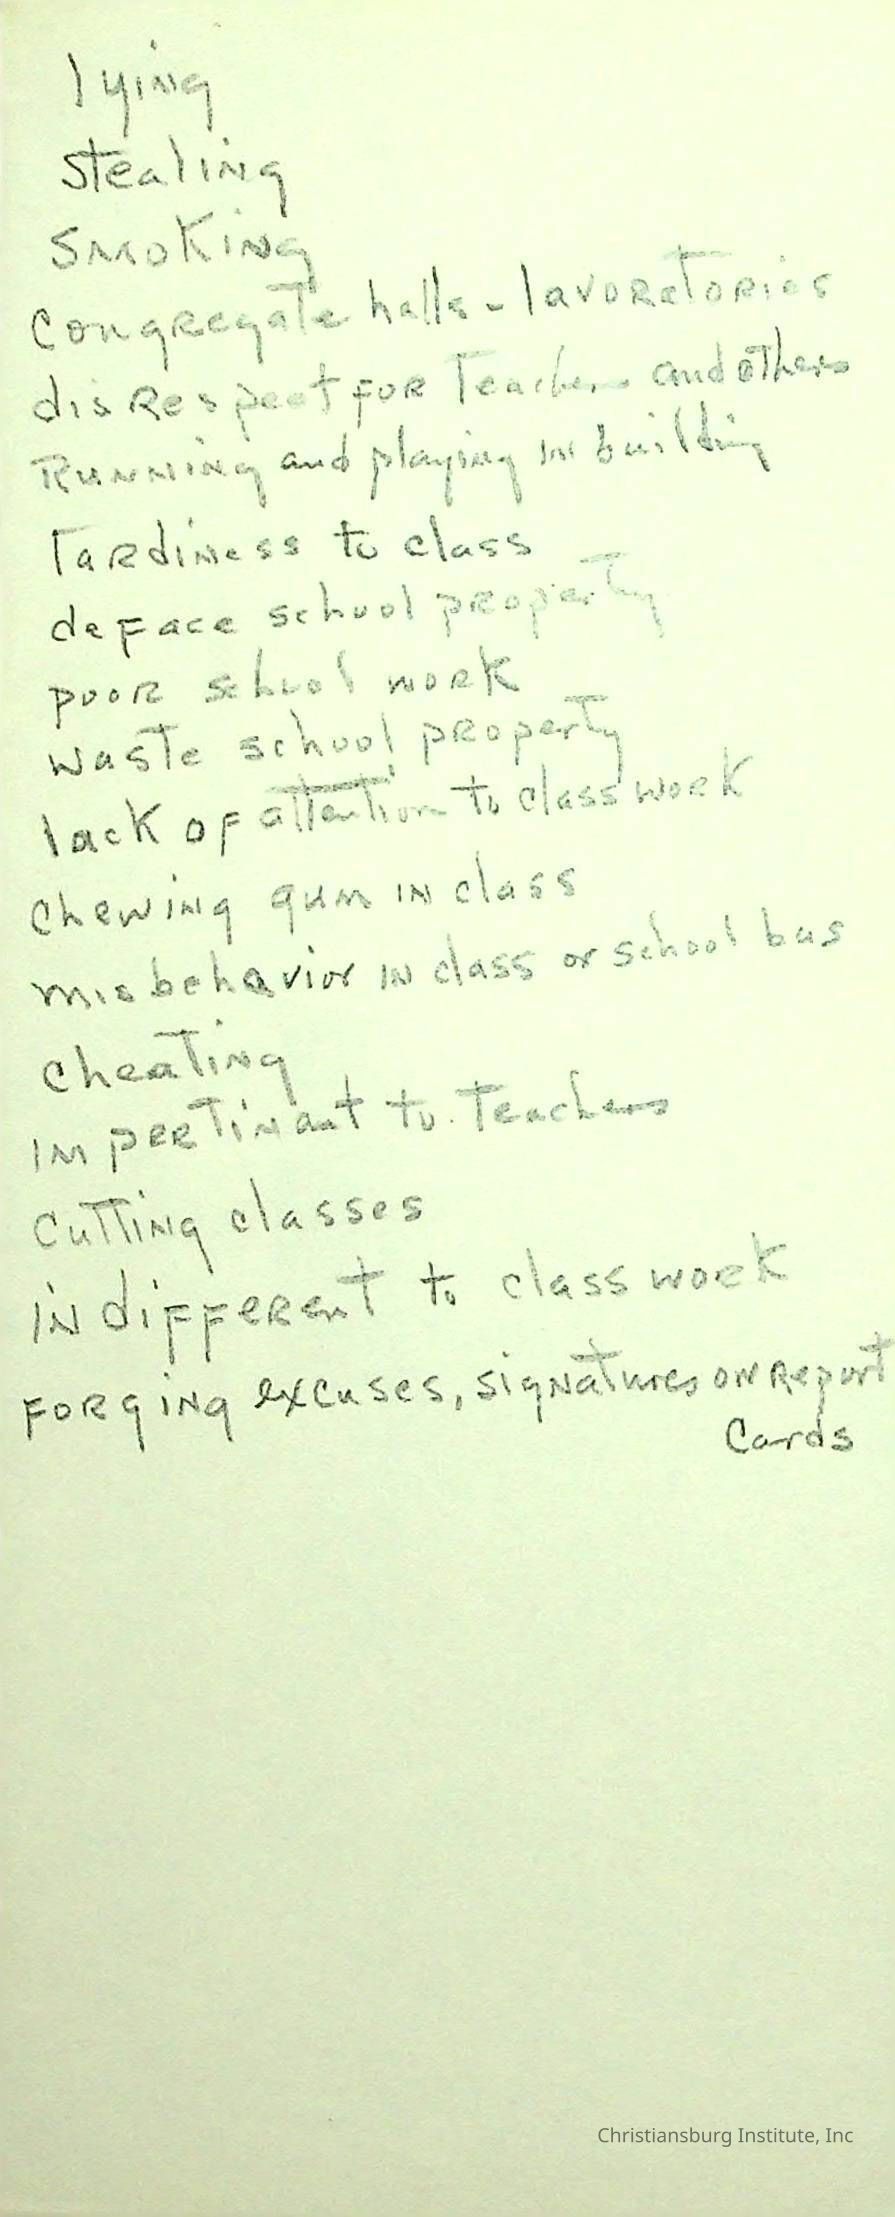 lying
stealing
smoking
congregate halls - lavoratories
disrespect for Teachers and others
Running and playing in building
Tardiness to class
deface school property
poor school work
waste school property
lack of attention to class work
chewing gum in class
misbehavior in class or school bus
cheating
impertinant to Teachers
cutting classes
indifferent to class work
forging excuses, signatures on Report
Cards
Christiansburg Institute, Inc